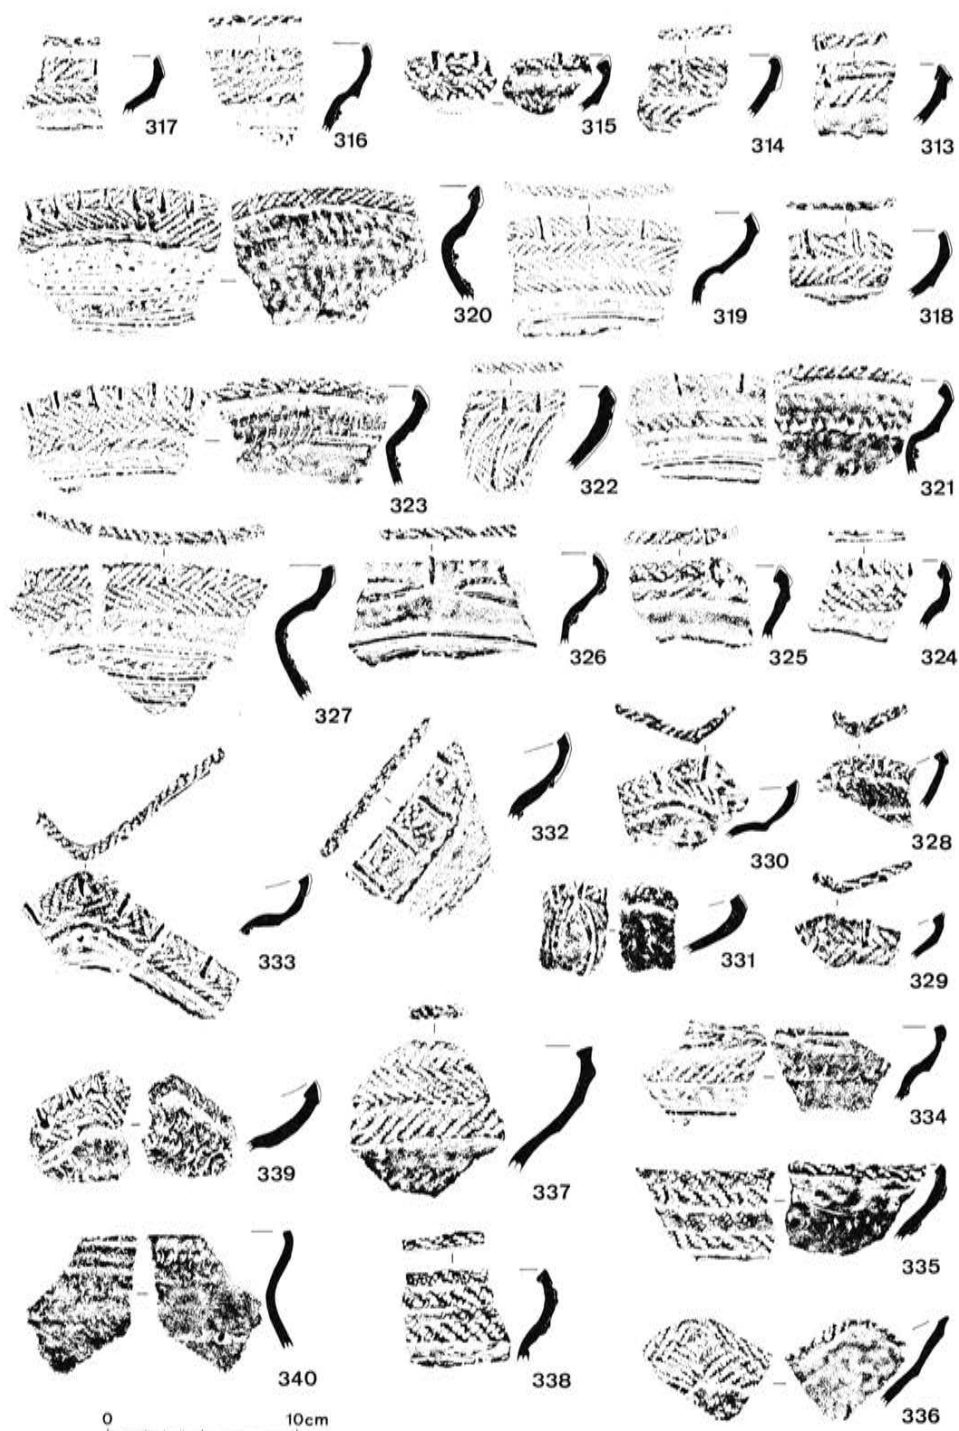 317
316
315
314
313
320
319
318
323
322
321
327
326
325
324
333
332
330
328
331
329
339
337
334
335
340
338
336
0 10cm